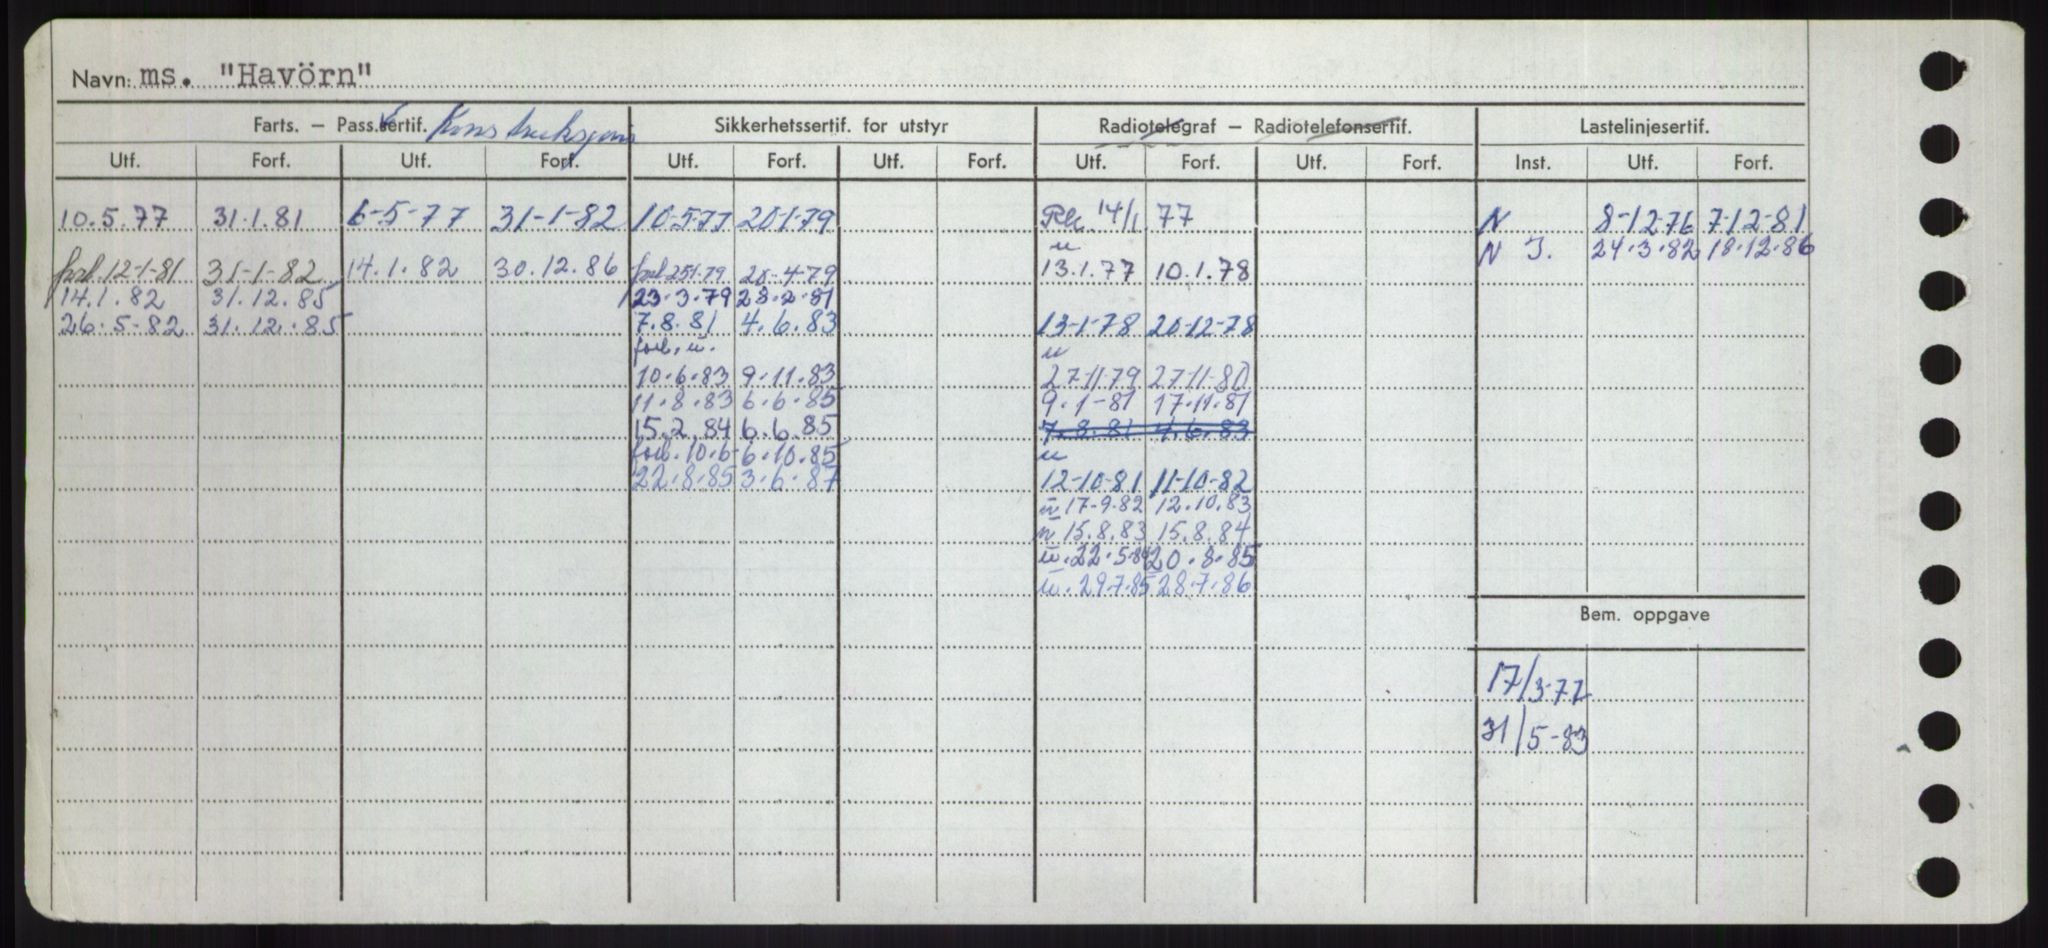 Navn: ms. "Havörn"
Farts. – Pass.sertif. Konstruksjons Sikkerhetssertif. for utstyr Radiotelegraf – Radiotelefonsertif. Lastelinjesertif.
Utf. Forf. Utf. Forf. Utf. Forf. Utf. Forf. Utf. Forf. Utf. Forf. Inst. Utf. Forf.
10.5.77 31.1.81 6-5-77 31-1-82 10-5-77 20-1-79 14/1 77 N 8-12-76 7-12-81
u N I. 24.3.82 18.12.86
forl. 12-1-81 31-1-82 14.1.82 30.12.86 forl 25.1.79 20-4-79 13.1.77 10.1.78
14.1.82 31.12.85 23.3.79 28.2.81
26.5-82 31.12.85 7.8.81 4.6.83 13-1-78 20-12-78
forl. u. u
10.6.83 9.11.83 27-11-79 27-11-80
11.8.83 6.6.85 9.1-81 17.11.81
15.2.84 6.6.85 7.8.81 4.6.83
forl. 10.6- 6.10.85 u
22.8.85 3.6.87 12-10-81 11-10-82
u 17-9-82 12.10.83
u 15.8.83 15.8.84
u. 22.5-84 20.8.85
u. 29.7.85 28.7.86
Bem. oppgave
17/3-77
31/5-83